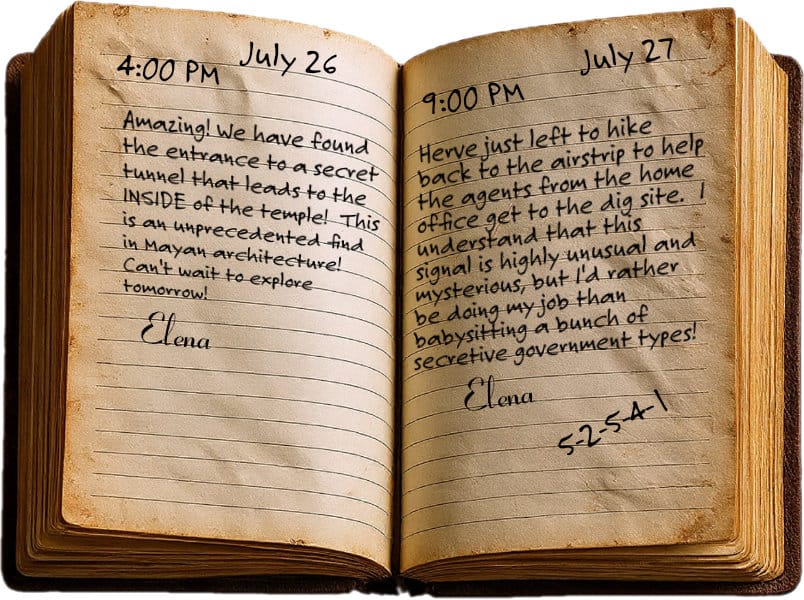 4:00 PM July 26
Amazing! We have found
the entrance to a secret
tunnel that leads to the
INSIDE of the temple! This
is an unprecedented find
in Mayan architecture!
Can't wait to explore
tomorrow!
Elena
9:00 PM July 27
Herve just left to hike
back to the airstrip to help
the agents from the home
office get to the dig site. I
understand that this
signal is highly unusual and
mysterious, but I'd rather
be doing my job than
babysitting a bunch of
secretive government types!
Elena
5-2-5-4-1